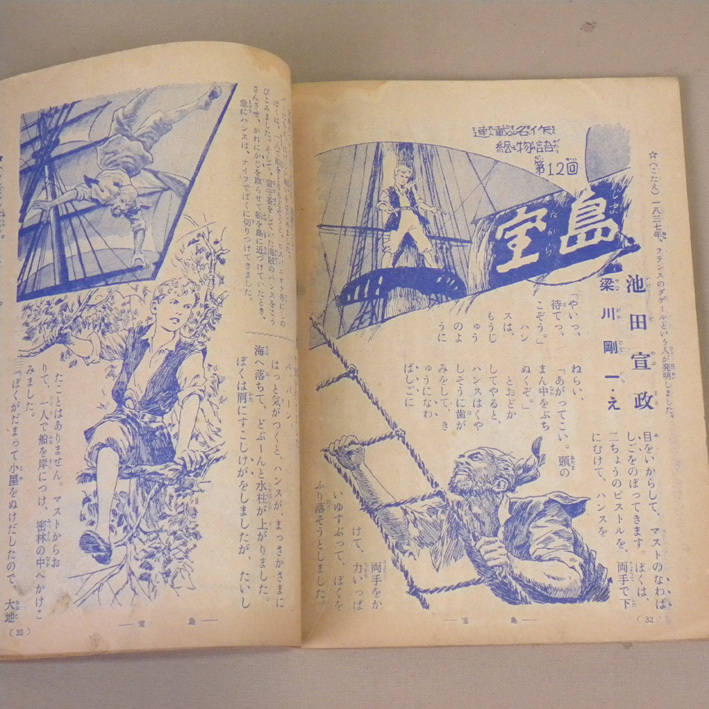 ☆(こたえ) 一八三七年、フランスのダゲールという人が発明しました。
連載名作
絵物語
第12回
宝島
池田宣政
梁川剛一・え
「やいっ、
待てっ、
こぞう。」
ハン
スは、
もうじ
ゅう
のよ
うに
目をいからして、マストのなわば
しごをのぼってきます。ぼくは、
二ちょうのピストルを、両手で下
にむけて、ハンスを
ねらい、
「あがってこい。頭の
まん中をぶち
ぬくぞ。」
とおどか
してやると、
ハンスはくや
しそうに歯が
みをして、き
ゅうになわ
ばしごに
両手をか
けて、力いっぱ
いゆすぶって、ぼくを
ふり落そうとしました。
(32)
―宝島―
さんさせ、かれにかじを取らせて船を島に近づけていたとき、
急にハンスは、ナイフでぼくに切りつけてきました。
はっと気がつくと、ハンスが、まっさかさまに
海へ落ちて、どぶーんと水柱が上がりました。
ぼくは肩にすこしけがをしましたが、たいし
たことはありません。マストからお
りて、一人で船を岸につけ、密林の中へかけこ
みました。
「ぼくがだまって小屋をぬけだしたので、大地
(33)
―宝島―